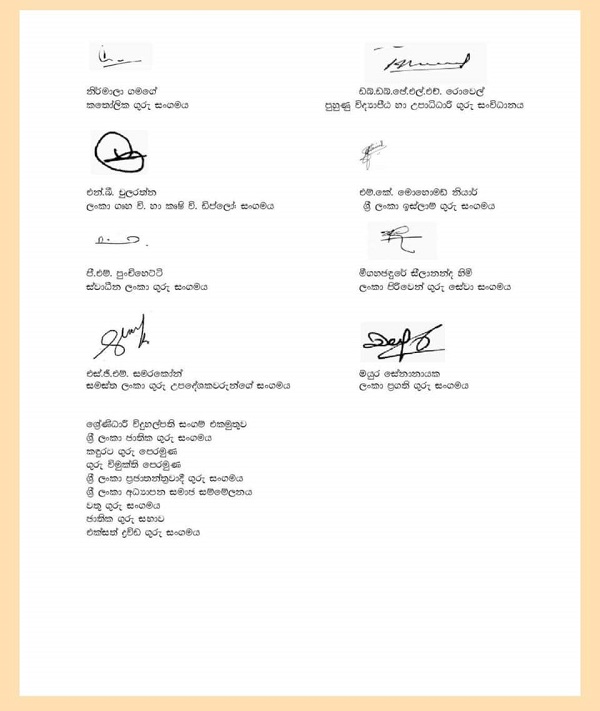 නිර්මාලා ගමගේ
කතෝලික ගුරු සංගමය
ඩබ්.ඩබ්.ජේ.එල්.එච්. රොවෙල්
පුහුණු විද්‍යාපීඨ හා උපාධිධාරී ගුරු සංවිධානය
එන්.බී. චූලරත්න
ලංකා ගෘහ වි. හා කෘෂි වි. ඩිප්ලෝ සංගමය
එම්.කේ. මොහොමඩ් නියාර්
ශ්‍රී ලංකා ඉස්ලාම් ගුරු සංගමය
පී.එම්. පුංචිහෙට්ටි
ස්වාධීන ලංකා ගුරු සංගමය
මීගහජඳුරේ සීලානන්ද හිමි
ලංකා පිරිවෙන් ගුරු සේවා සංගමය
එස්.ජී.එම්. සමරකෝන්
සමස්ත ලංකා ගුරු උපදේශකවරුන්ගේ සංගමය
මයුර සේනානායක
ලංකා ප්‍රගති ගුරු සංගමය
ශ්‍රේණිධාරී විදුහල්පති සංගම් එකමුතුව
ශ්‍රී ලංකා ජාතික ගුරු සංගමය
කඳුරට ගුරු පෙරමුණ
ගුරු විමුක්ති පෙරමුණ
ශ්‍රී ලංකා ප්‍රජාතන්ත්‍රවාදී ගුරු සංගමය
ශ්‍රී ලංකා අධ්‍යාපන සමාජ සම්මේලනය
වතු ගුරු සංගමය
ජාතික ගුරු සභාව
එක්සත් ද්‍රවිඩ ගුරු සංගමය